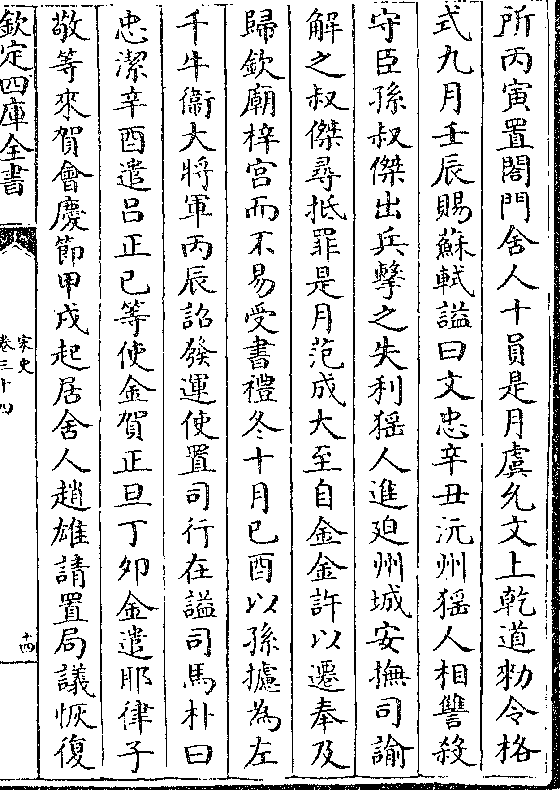 所丙寅置閤門舍人十員是月虞允文上乾道勑令格
式九月壬辰賜蘇軾諡曰文忠辛丑沅州猺人相讐殺
守臣孫叔傑出兵擊之失利猺人進廹州城安撫司諭
解之叔傑尋抵罪是月范成大至自金金許以遷奉及
歸欽廟梓宫而不易受書禮冬十月已酉以孫攄為左
千牛衞大將軍丙辰詔發運使置司行在諡司馬朴曰
忠潔辛酉遣吕正已等使金賀正旦丁夘金遣耶律子
敬等來賀會慶節甲戌起居舍人趙雄請置局議恢復
欽定四庫全書
宋史
卷三十四
十四